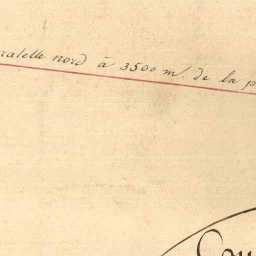 ralelle nord à 3500 m. de la p
Cou